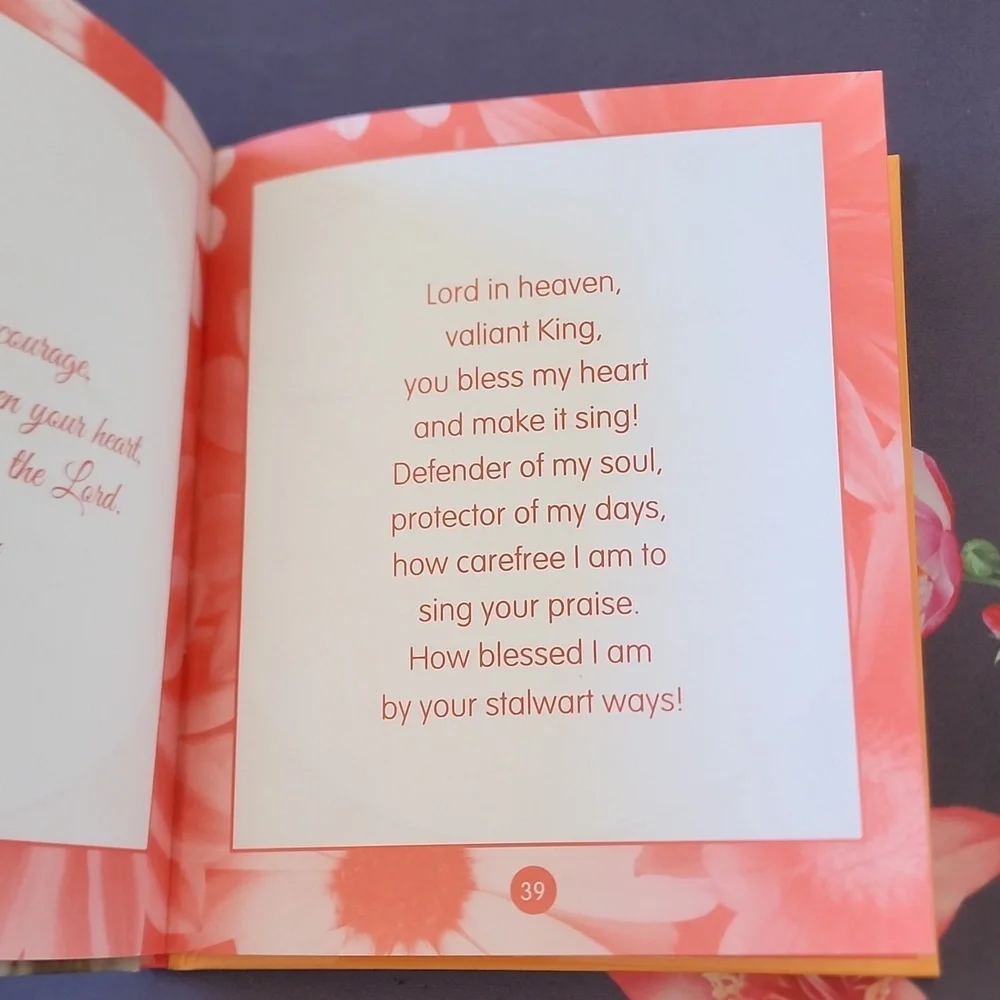 courage,
your heart,
the Lord.
Lord in heaven,
valiant King,
you bless my heart
and make it sing!
Defender of my soul,
protector of my days,
how carefree I am to
sing your praise.
How blessed I am
by your stalwart ways!
39